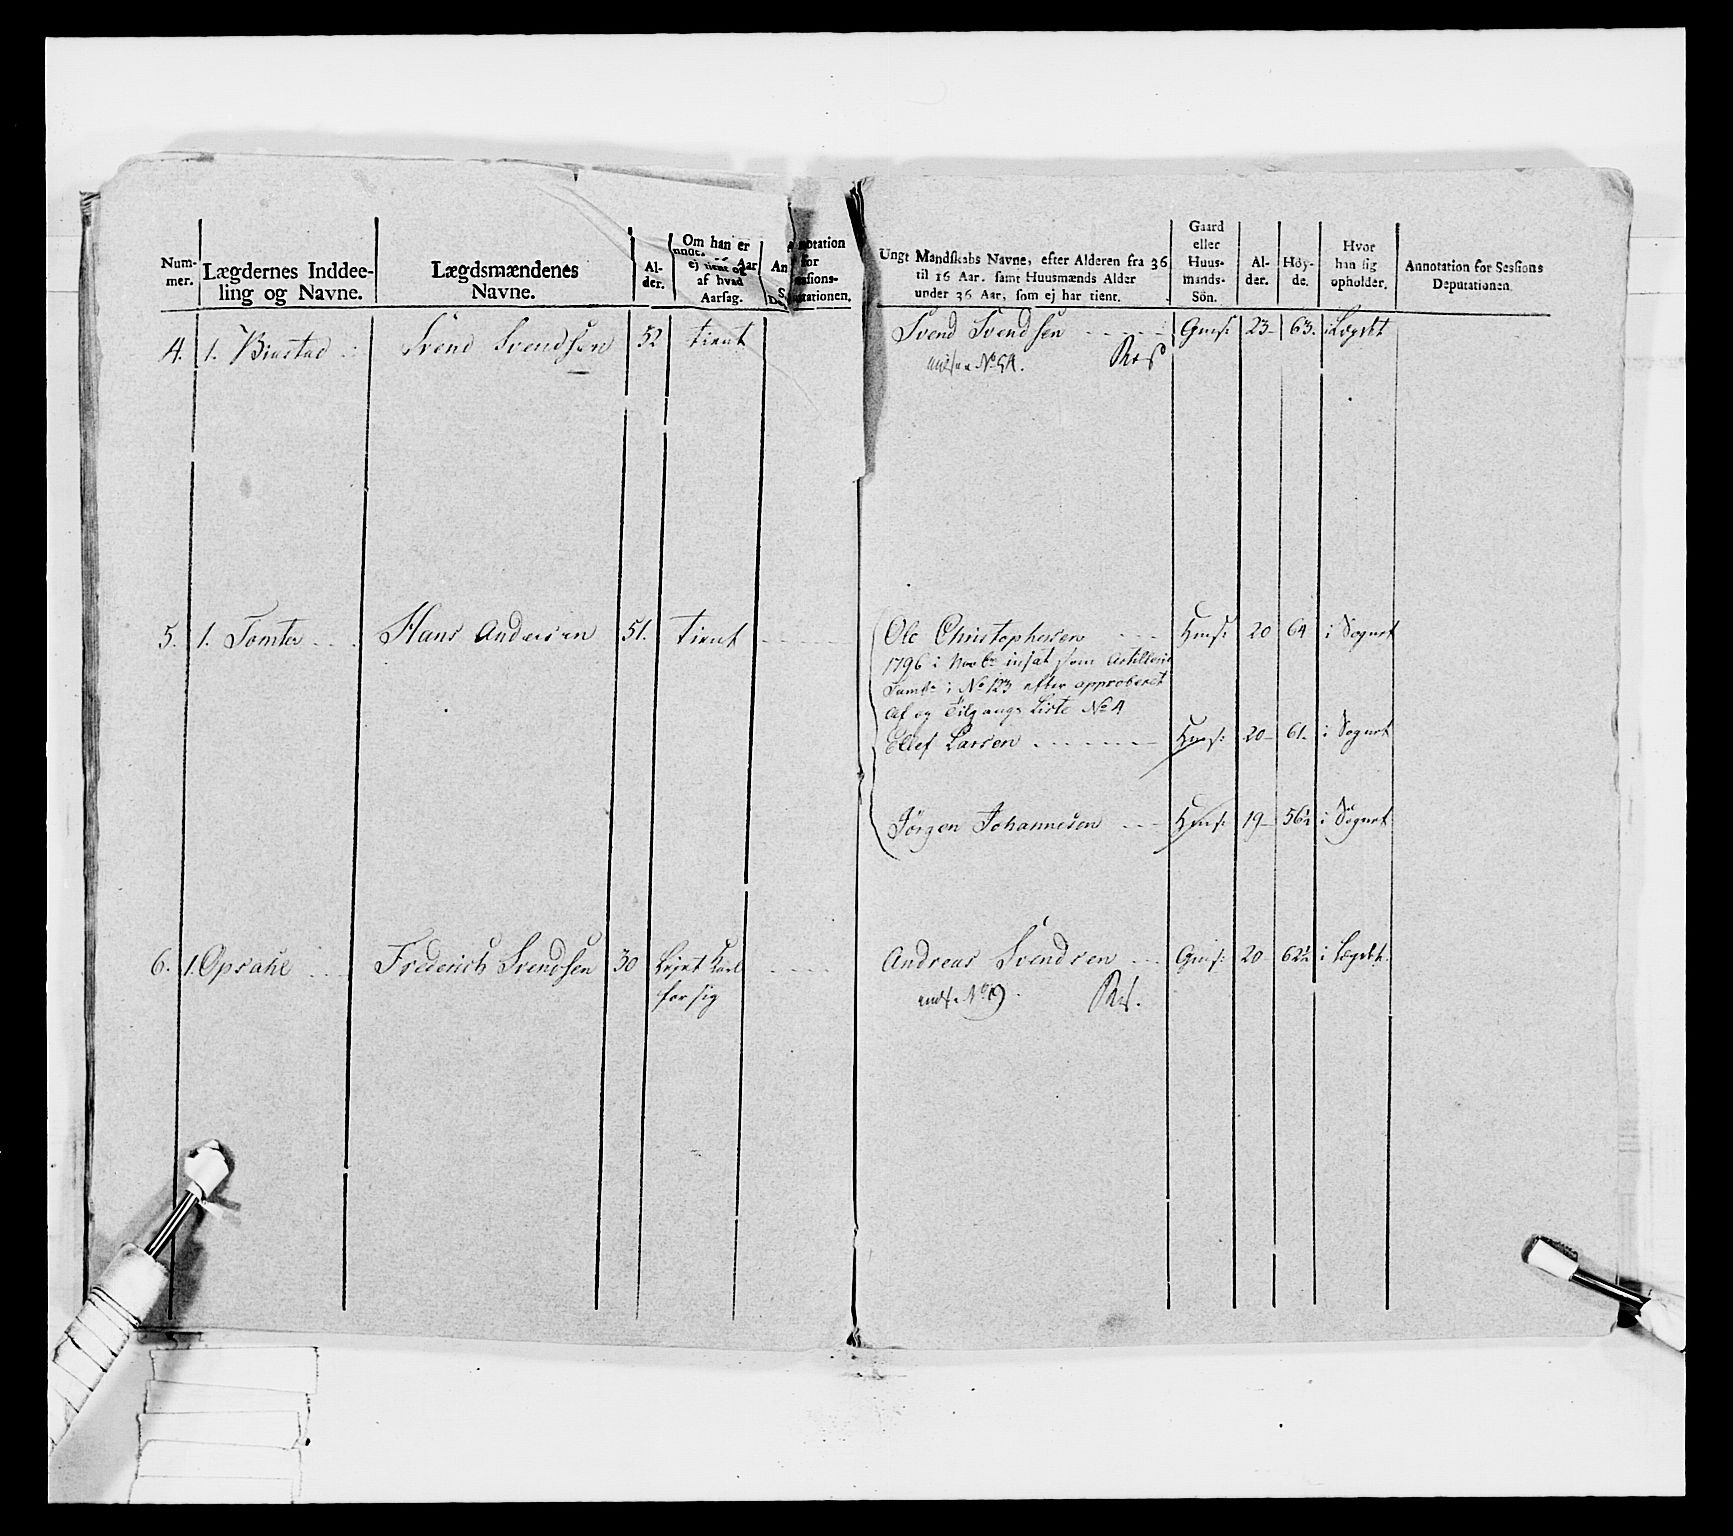 Num-
mer.
Lægdernes Inddee-
ling og Navne.
Lægdsmændenes
Navne.
Al-
der.
Om han er
ej tient og
af hvad
Aarsag.
Annotation
for
Sessions-
Deputationen.
Ungt Mandskabs Navne, efter Alderen fra 36
til 16 Aar, samt Huusmænds Alder
under 36 Aar, som ej har tient.
Gaard
eller
Huus-
mands-
Sön.
Al-
der.
Höy-
de.
Hvor
han sig
opholder.
Annotation for Sessions
Deputationen.
4. 1. Svend Svendsen 52 tient
Svend Svendsen Gms: 23 63. i Lægdet
Res
5. 1. Tomter Hans Andersen 51. tient
Ole Christophersen Hms: 20 64 i Sognet
1796 i Novbr indsat som Artillerie
i No 123 efter approberet
Af og Tilgangs Liste No 4
Ellef Larsen Hms: 20 61. i Sognet
Jörgen Johannesen Hms: 19 56½ i Sognet
6. 1. Opsahl Frederich Svendsen 30 Lejet Karl
for sig
Andreas Svendsen Gms: 20 62½ i Lægdet.
Res.